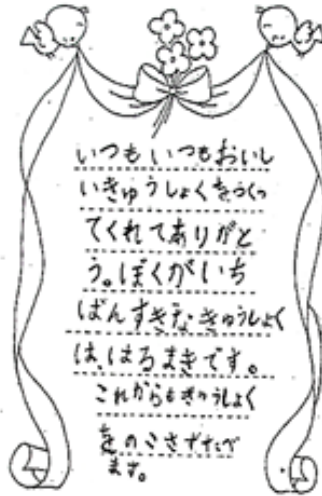 いつもいつもおいし
いきゅうしょくをつくっ
てくれてありがと
う。ぼくがいち
ばんすきなきゅうしょく
は、はるまきです。
これからもきゅうしょく
をのこさずたべ
ます。